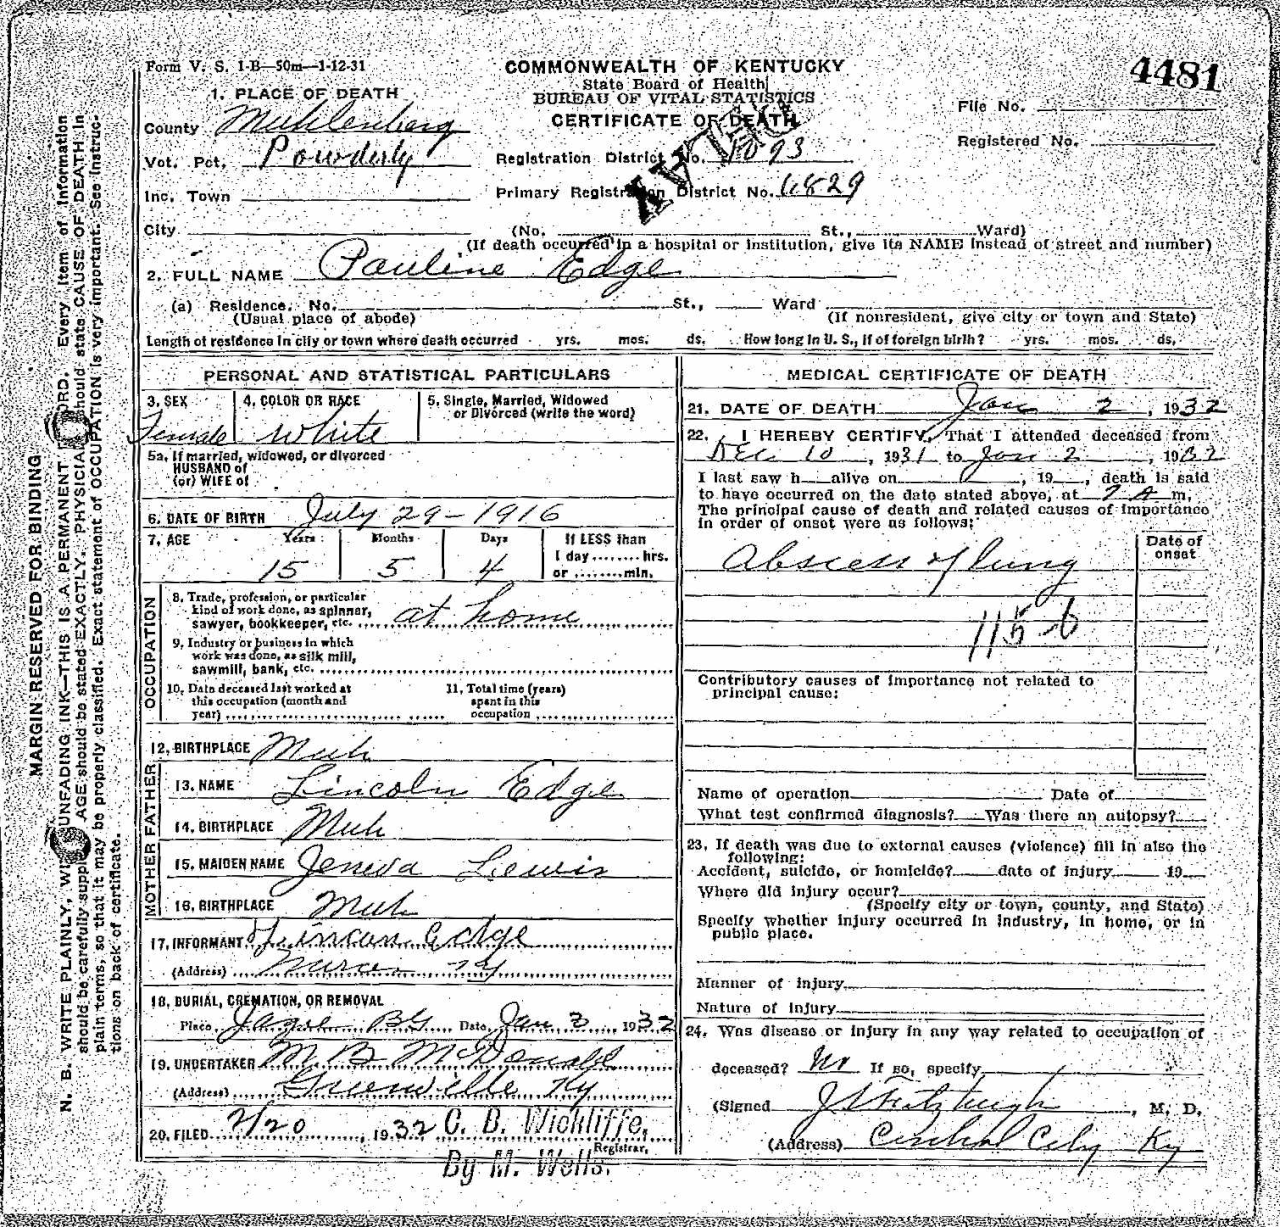 Form V. S. 1-B—50m—1-12-31
COMMONWEALTH OF KENTUCKY
State Board of Health
BUREAU OF VITAL STATISTICS
CERTIFICATE OF DEATH
4481
File No.
Registered No.
1. PLACE OF DEATH
County Muhlenberg
Vot. Pct. Powderly
Inc. Town
City
Registration District No. 1093
Primary Registration District No. 6829
(No. St., Ward)
(If death occurred in a hospital or institution, give its NAME instead of street and number)
2. FULL NAME Pauline Edge
(a) Residence. No. St., Ward
(Usual place of abode) (If nonresident, give city or town and State)
Length of residence in city or town where death occurred yrs. mos. ds. How long in U. S., if of foreign birth? yrs. mos. ds.
PERSONAL AND STATISTICAL PARTICULARS
3. SEX Female
4. COLOR OR RACE White
5. Single, Married, Widowed or Divorced (write the word)
5a. If married, widowed, or divorced
HUSBAND of
(or) WIFE of
6. DATE OF BIRTH July 29-1916
7. AGE Years Months Days If LESS than
15 5 4 1 day ........ hrs.
or ........ min.
OCCUPATION
8. Trade, profession, or particular
kind of work done, as spinner,
sawyer, bookkeeper, etc. at home
9. Industry or business in which
work was done, as silk mill,
sawmill, bank, etc.
10. Date deceased last worked at
this occupation (month and
year)
11. Total time (years)
spent in this
occupation
12. BIRTHPLACE Muh
FATHER
13. NAME Lincoln Edge
14. BIRTHPLACE Muh
MOTHER
15. MAIDEN NAME Jeneva Lewis
16. BIRTHPLACE Muh
17. INFORMANT Lincon Edge
(Address) Ky
18. BURIAL, CREMATION, OR REMOVAL
Place BG Date Jan 3, 1932
19. UNDERTAKER M B McDonald
(Address) Greenville Ky
20. FILED 2/20, 1932 C. B. Wickliffe,
Registrar.
By M. Wells.
MEDICAL CERTIFICATE OF DEATH
21. DATE OF DEATH Jan 2, 1932
22. I HEREBY CERTIFY, That I attended deceased from
Dec 10, 1931 to Jan 2, 1932
I last saw h alive on , 19 , death is said
to have occurred on the date stated above, at 7 A m.
The principal cause of death and related causes of importance
in order of onset were as follows:
Date of
onset
Abscess of lung
115-b
Contributory causes of importance not related to
principal cause:
Name of operation Date of
What test confirmed diagnosis? Was there an autopsy?
23. If death was due to external causes (violence) fill in also the
following:
Accident, suicide, or homicide? date of injury 19
Where did injury occur?
(Specify city or town, county, and State)
Specify whether injury occurred in industry, in home, or in
public place.
Manner of injury
Nature of injury
24. Was disease or injury in any way related to occupation of
deceased? No If so, specify
(Signed J Fitzhugh, M. D.
(Address) Central City Ky
MARGIN RESERVED FOR BINDING
N. B. WRITE PLAINLY, WITH UNFADING INK—THIS IS A PERMANENT RECORD. Every item of information
should be carefully supplied. AGE should be stated EXACTLY. PHYSICIANS should state CAUSE OF DEATH in
plain terms, so that it may be properly classified. Exact statement of OCCUPATION is very important. See instruc-
tions on back of certificate.